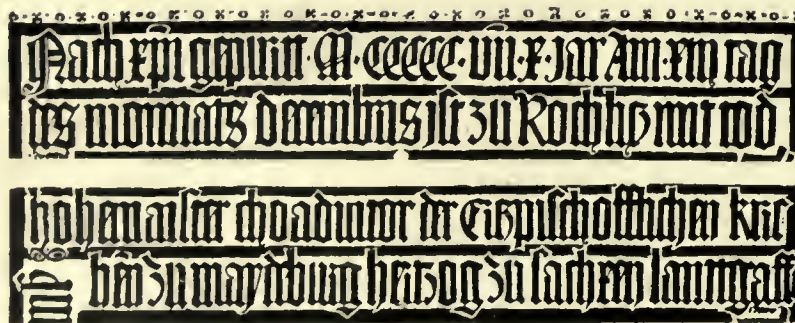 Nach xpi gepurtt · M · CCCCC · vñ · x · jar Am · xiiij tag
des monnats decembris ist zu Rochlitz mit tod
hohenmaister choadiutor der Ertzpischofftlichen kirc
hen zu maydeburg hertzog zu sachsen lanntgraff